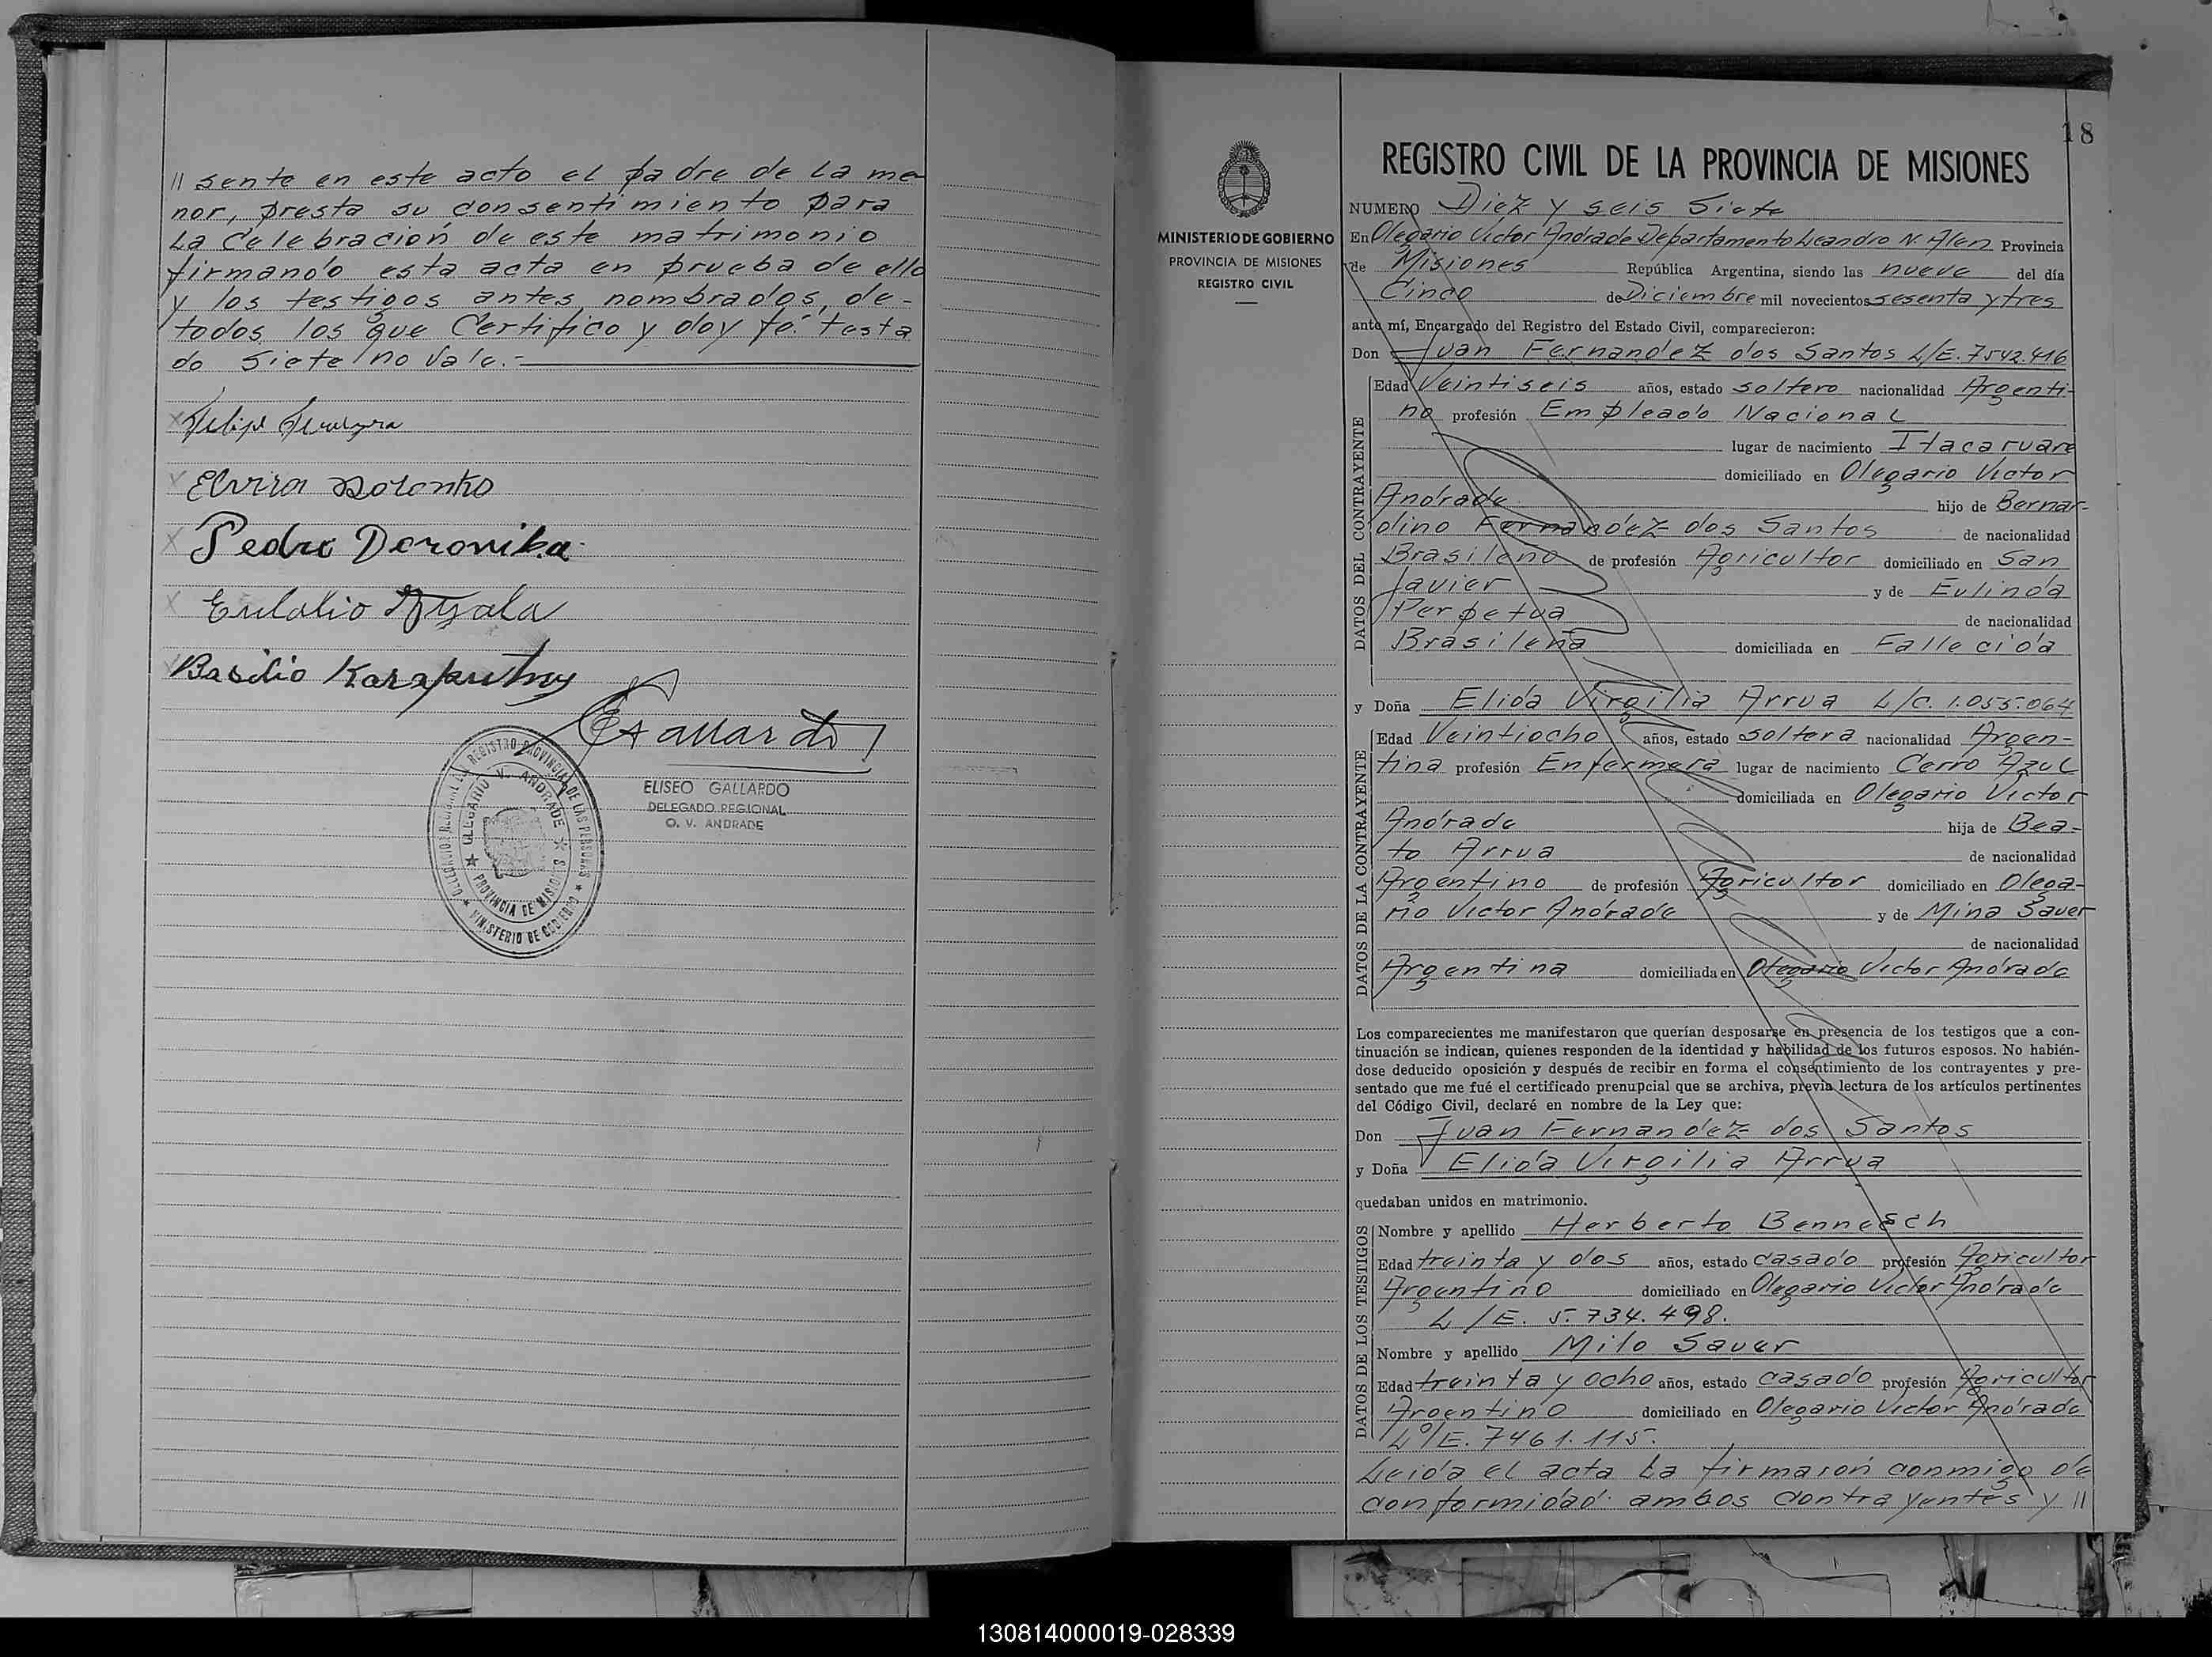 // sente en este acto el padre de la me-
nor, presta su consentimiento para
la Celebración de este matrimonio
firmando esta acta en prueba de ello
y los testigos antes nombrados, de-
todos los que Certifico y doy fé: testa
do siete/no vale.-
Elvira Dolenko
Pedro Doronika
Eulalio Ayala
Basilio
ELISEO GALLARDO
DELEGADO REGIONAL
O. V. ANDRADE
OLEGARIO V. ANDRADE
PROVINCIA DE MISIONES
MINISTERIO DE GOBIERNO
18
MINISTERIO DE GOBIERNO
PROVINCIA DE MISIONES
REGISTRO CIVIL
REGISTRO CIVIL DE LA PROVINCIA DE MISIONES
NUMERO Diez y seis Siete
En Olegario Victor Andrade Departamento Leandro N. Alen Provincia
de Misiones República Argentina, siendo las nueve del día
Cinco de Diciembre mil novecientos sesenta y tres
ante mí, Encargado del Registro del Estado Civil, comparecieron:
Don Juan Fernandez dos Santos L/E. 7542.416
DATOS DEL CONTRAYENTE
Edad Veintiseis años, estado soltero nacionalidad Argenti-
no profesión Empleado Nacional
lugar de nacimiento Itacaruare
domiciliado en Olegario Victor
Andrade hijo de Bernar-
dino Fernandez dos Santos de nacionalidad
Brasileño de profesión Agricultor domiciliado en San
Javier y de Eulinda
Perpetua de nacionalidad
Brasileña domiciliada en Fallecida
y Doña Elida Virgilia Arrua L/C. 1.055.064
DATOS DE LA CONTRAYENTE
Edad Veintiocho años, estado soltera nacionalidad Argen-
tina profesión Enfermera lugar de nacimiento Cerro Azul
domiciliada en Olegario Victor
Andrade hija de Bea-
to Arrua de nacionalidad
Argentino de profesión Agricultor domiciliado en Olega-
rio Victor Andrade y de Mina Sauer
de nacionalidad
Argentina domiciliada en Olegario Victor Andrade
Los comparecientes me manifestaron que querían desposarse en presencia de los testigos que a con-
tinuación se indican, quienes responden de la identidad y habilidad de los futuros esposos. No habién-
dose deducido oposición y después de recibir en forma el consentimiento de los contrayentes y pre-
sentado que me fué el certificado prenupcial que se archiva, previa lectura de los artículos pertinentes
del Código Civil, declaré en nombre de la Ley que:
Don Juan Fernandez dos Santos
y Doña Elida Virgilia Arrua
quedaban unidos en matrimonio.
DATOS DE LOS TESTIGOS
Nombre y apellido Herberto Bennesch
Edad treinta y dos años, estado casado profesión Agricultor
Argentino domiciliado en Olegario Victor Andrade
L/E. 5.734.498.
Nombre y apellido Milo Sauer
Edad treinta y ocho años, estado casado profesión Agricultor
Argentino domiciliado en Olegario Victor Andrade
L/E. 7461.115.
Leida el acta la firmaron conmigo de
conformidad: ambos contrayentes y //
130814000019-028339